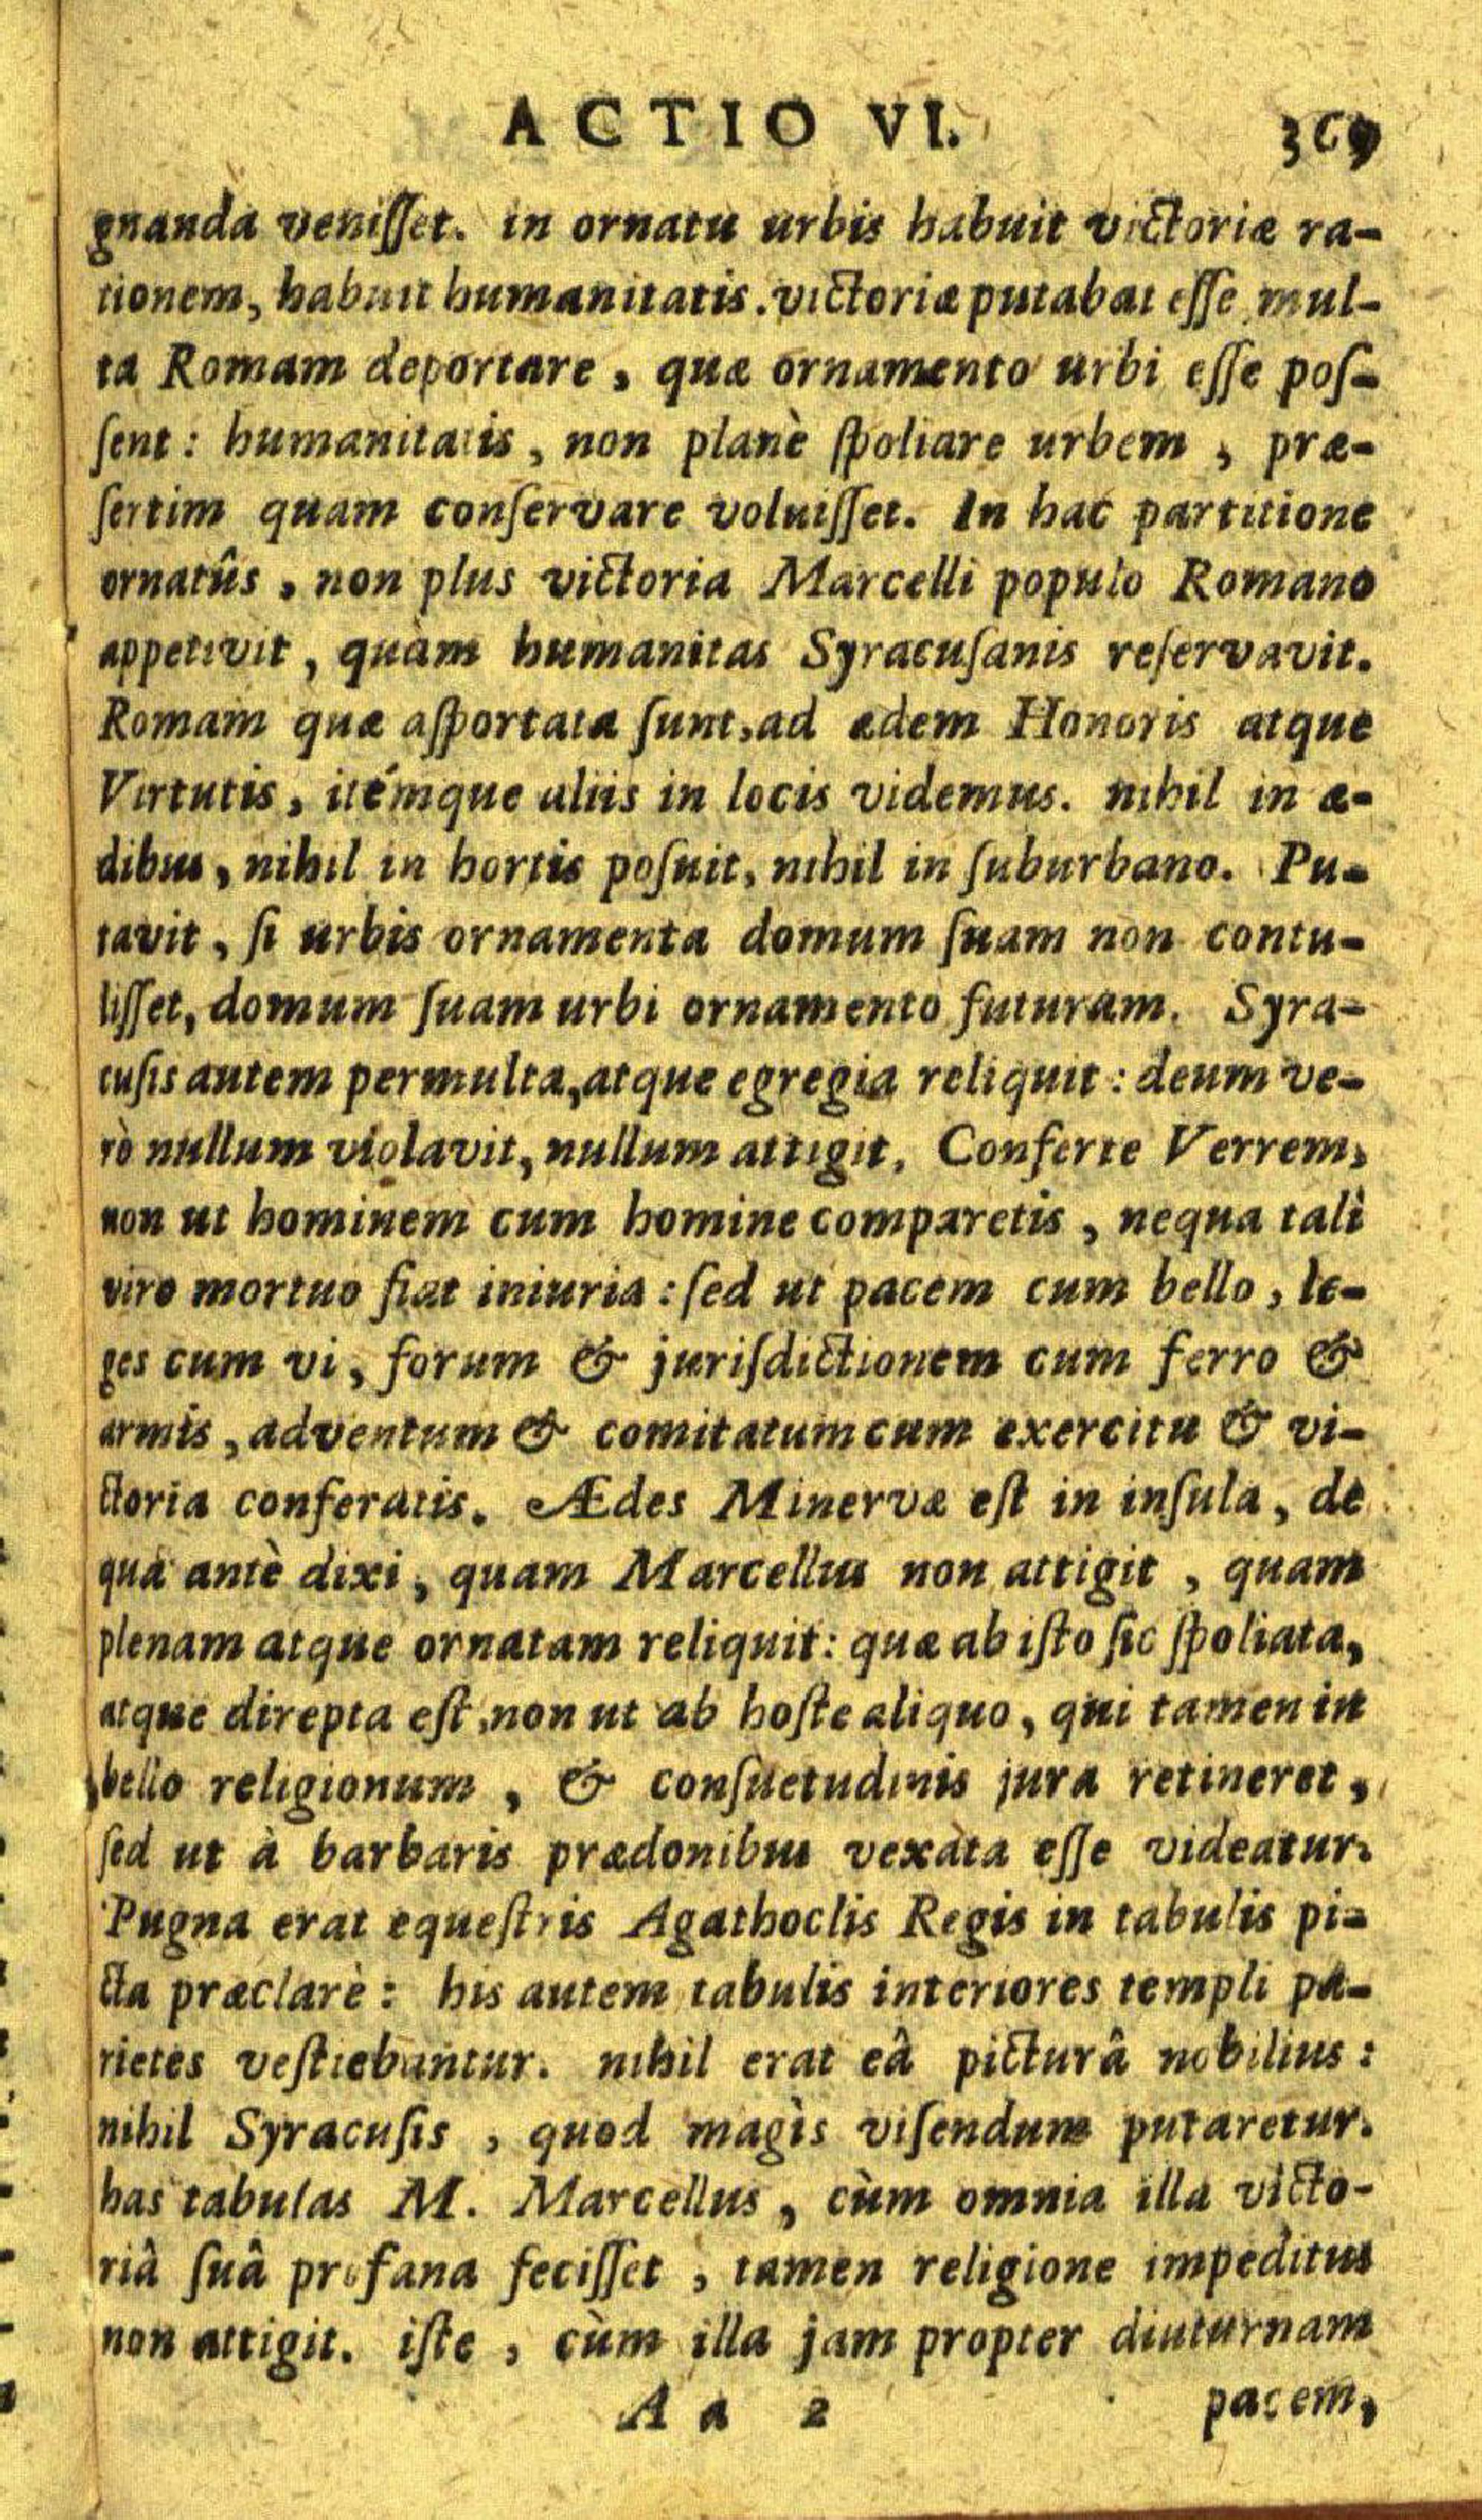 ACTIO VI. 369
gnanda veniſſet. in ornatu urbis habuit victoriæ ra-
tionem, habuit humanitatis. victoriæ putabat eſſe mul-
ta Romam deportare, quæ ornamento urbi eſſe poſ-
ſent: humanitatis, non planè ſpoliare urbem, præ-
ſertim quam conſervare voluiſſet. In hac partitione
ornatûs, non plus victoria Marcelli populo Romano
appetivit, quàm humanitas Syracuſanis reſervavit.
Romam quæ aſportata ſunt, ad ædem Honoris atque
Virtutis, itémque aliis in locis videmus. nihil in æ-
dibus, nihil in hortis poſuit, nihil in ſuburbano. Pu-
tavit, ſi urbis ornamenta domum ſuam non contu-
liſſet, domum ſuam urbi ornamento futuram. Syra-
cuſis autem permulta, atque egregia reliquit: deum ve-
rò nullum violavit, nullum attigit. Conferte Verrem,
non ut hominem cum homine comparetis, nequa tali
viro mortuo fiat iniuria: ſed ut pacem cum bello, le-
ges cum vi, forum & juriſdictionem cum ferro &
armis, adventum & comitatum cum exercitu & vi-
ctoria conferatis. Ædes Minervæ eſt in inſula, de
qua antè dixi, quam Marcellus non attigit, quam
plenam atque ornatam reliquit: quæ ab iſto ſic ſpoliata,
atque direpta eſt, non ut ab hoſte aliquo, qui tamen in
bello religionum, & conſuetudinis jura retineret,
ſed ut à barbaris prædonibus vexata eſſe videatur.
Pugna erat equeſtris Agathoclis Regis in tabulis pi-
cta præclarè: his autem tabulis interiores templi pa-
rietes veſtiebantur. nihil erat eâ picturâ nobilius:
nihil Syracuſis, quod magìs viſendum putaretur.
has tabulas M. Marcellus, cùm omnia illa victo-
riâ ſuâ profana feciſſet, tamen religione impeditus
non attigit. iſte, cùm illa jam propter diuturnam
A a 2 pacem,